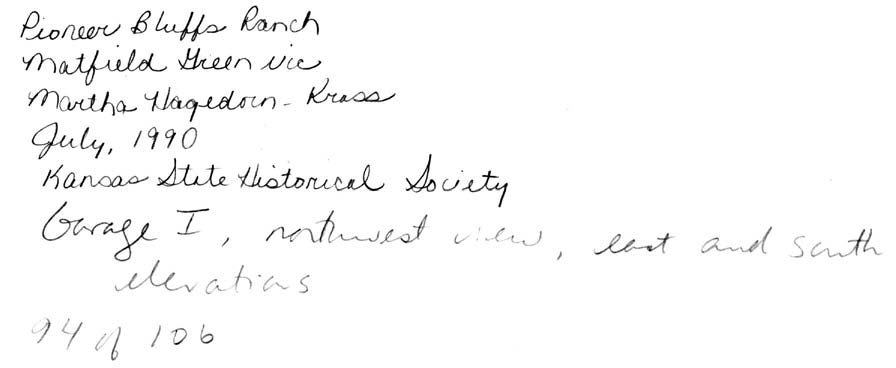 Pioneer Bluffs Ranch
Matfield Green vic
Martha Hagedorn-Krass
July, 1990
Kansas State Historical Society
Garage I, northwest view, east and south
elevations
94 of 106